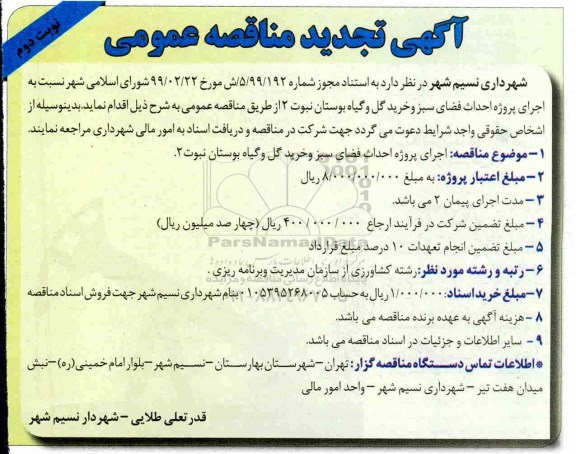 نوبت دوم
آگهی تجدید مناقصه عمومی
شهرداری نسیم شهر در نظر دارد به استناد مجوز شماره ۵/۹۹/۱۹۲/ش مورخ ۹۹/۰۲/۲۲ شورای اسلامی شهر نسبت به
اجرای پروژه احداث فضای سبز و خرید گل و گیاه بوستان نبوت ۲ از طریق مناقصه عمومی به شرح ذیل اقدام نماید. بدینوسیله از
اشخاص حقوقی واجد شرایط دعوت می گردد جهت شرکت در مناقصه و دریافت اسناد به امور مالی شهرداری مراجعه نمایند.
۱– موضوع مناقصه: اجرای پروژه احداث فضای سبز و خرید گل و گیاه بوستان نبوت ۲.
۲– مبلغ اعتبار پروژه: به مبلغ ۸/۰۰۰/۰۰۰/۰۰۰ ریال
۳– مدت اجرای پیمان ۲ می باشد.
۴– مبلغ تضمین شرکت در فرآیند ارجاع ۴۰۰/۰۰۰/۰۰۰ ریال (چهار صد میلیون ریال)
ParsNamadData
۵– مبلغ تضمین انجام تعهدات ۱۰ درصد مبلغ قرارداد
۶– رتبه و رشته مورد نظر: رشته کشاورزی از سازمان مدیریت و برنامه ریزی .
۷– مبلغ خرید اسناد: ۱/۰۰۰/۰۰۰ ریال به حساب ۰۱۰۵۳۹۵۲۶۸۰۰۵ بنام شهرداری نسیم شهر جهت فروش اسناد مناقصه
۸– هزینه آگهی به عهده برنده مناقصه می باشد.
۹– سایر اطلاعات و جزئیات در اسناد مناقصه می باشد.
*اطلاعات تماس دستگاه مناقصه گزار: تهران–شهرستان بهارستان–نسیم شهر–بلوار امام خمینی(ره)–نبش
میدان هفت تیر – شهرداری نسیم شهر – واحد امور مالی
قدرتعلی طلایی – شهردار نسیم شهر